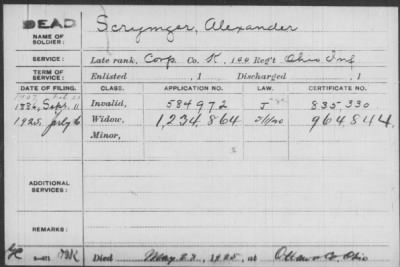 DEAD
NAME OF SOLDIER: Scrymger, Alexander
SERVICE: Late rank, Corp Co. K, 144 Reg't Ohio Inf
TERM OF SERVICE: Enlisted , 1 Discharged , 1
DATE OF FILING. CLASS. APPLICATION NO. LAW. CERTIFICATE NO.
1886, Sept. 11 Invalid, 584972 J 835,330
1925, July 6 Widow, 1,234,864 964,844
Minor,
ADDITIONAL SERVICES:
REMARKS:
Died May 1925, at Ottawa Co, Ohio